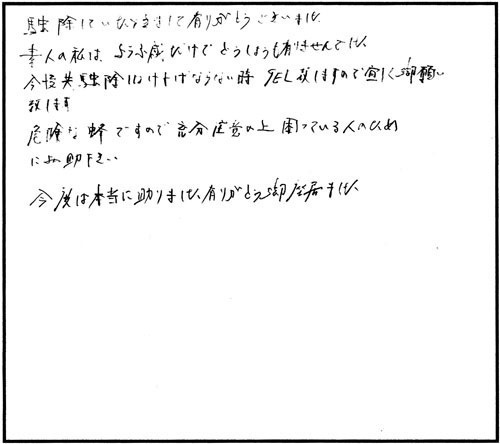 駆除していただきまして有りがとうございました
素人の私は、ようふ感だけでどうしようも有りませんでした
今後共駆除しなければならない時 TEL致しますので宜しく御願い
致します
危険な蜂ですので充分注意の上 困っている人のため
にお助下さい
今度は本当に助りました、有りがとう御座居ました